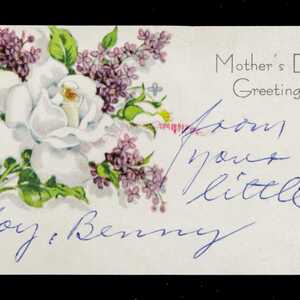 Mother's D
Greeting
from
your
little
oy, Benny